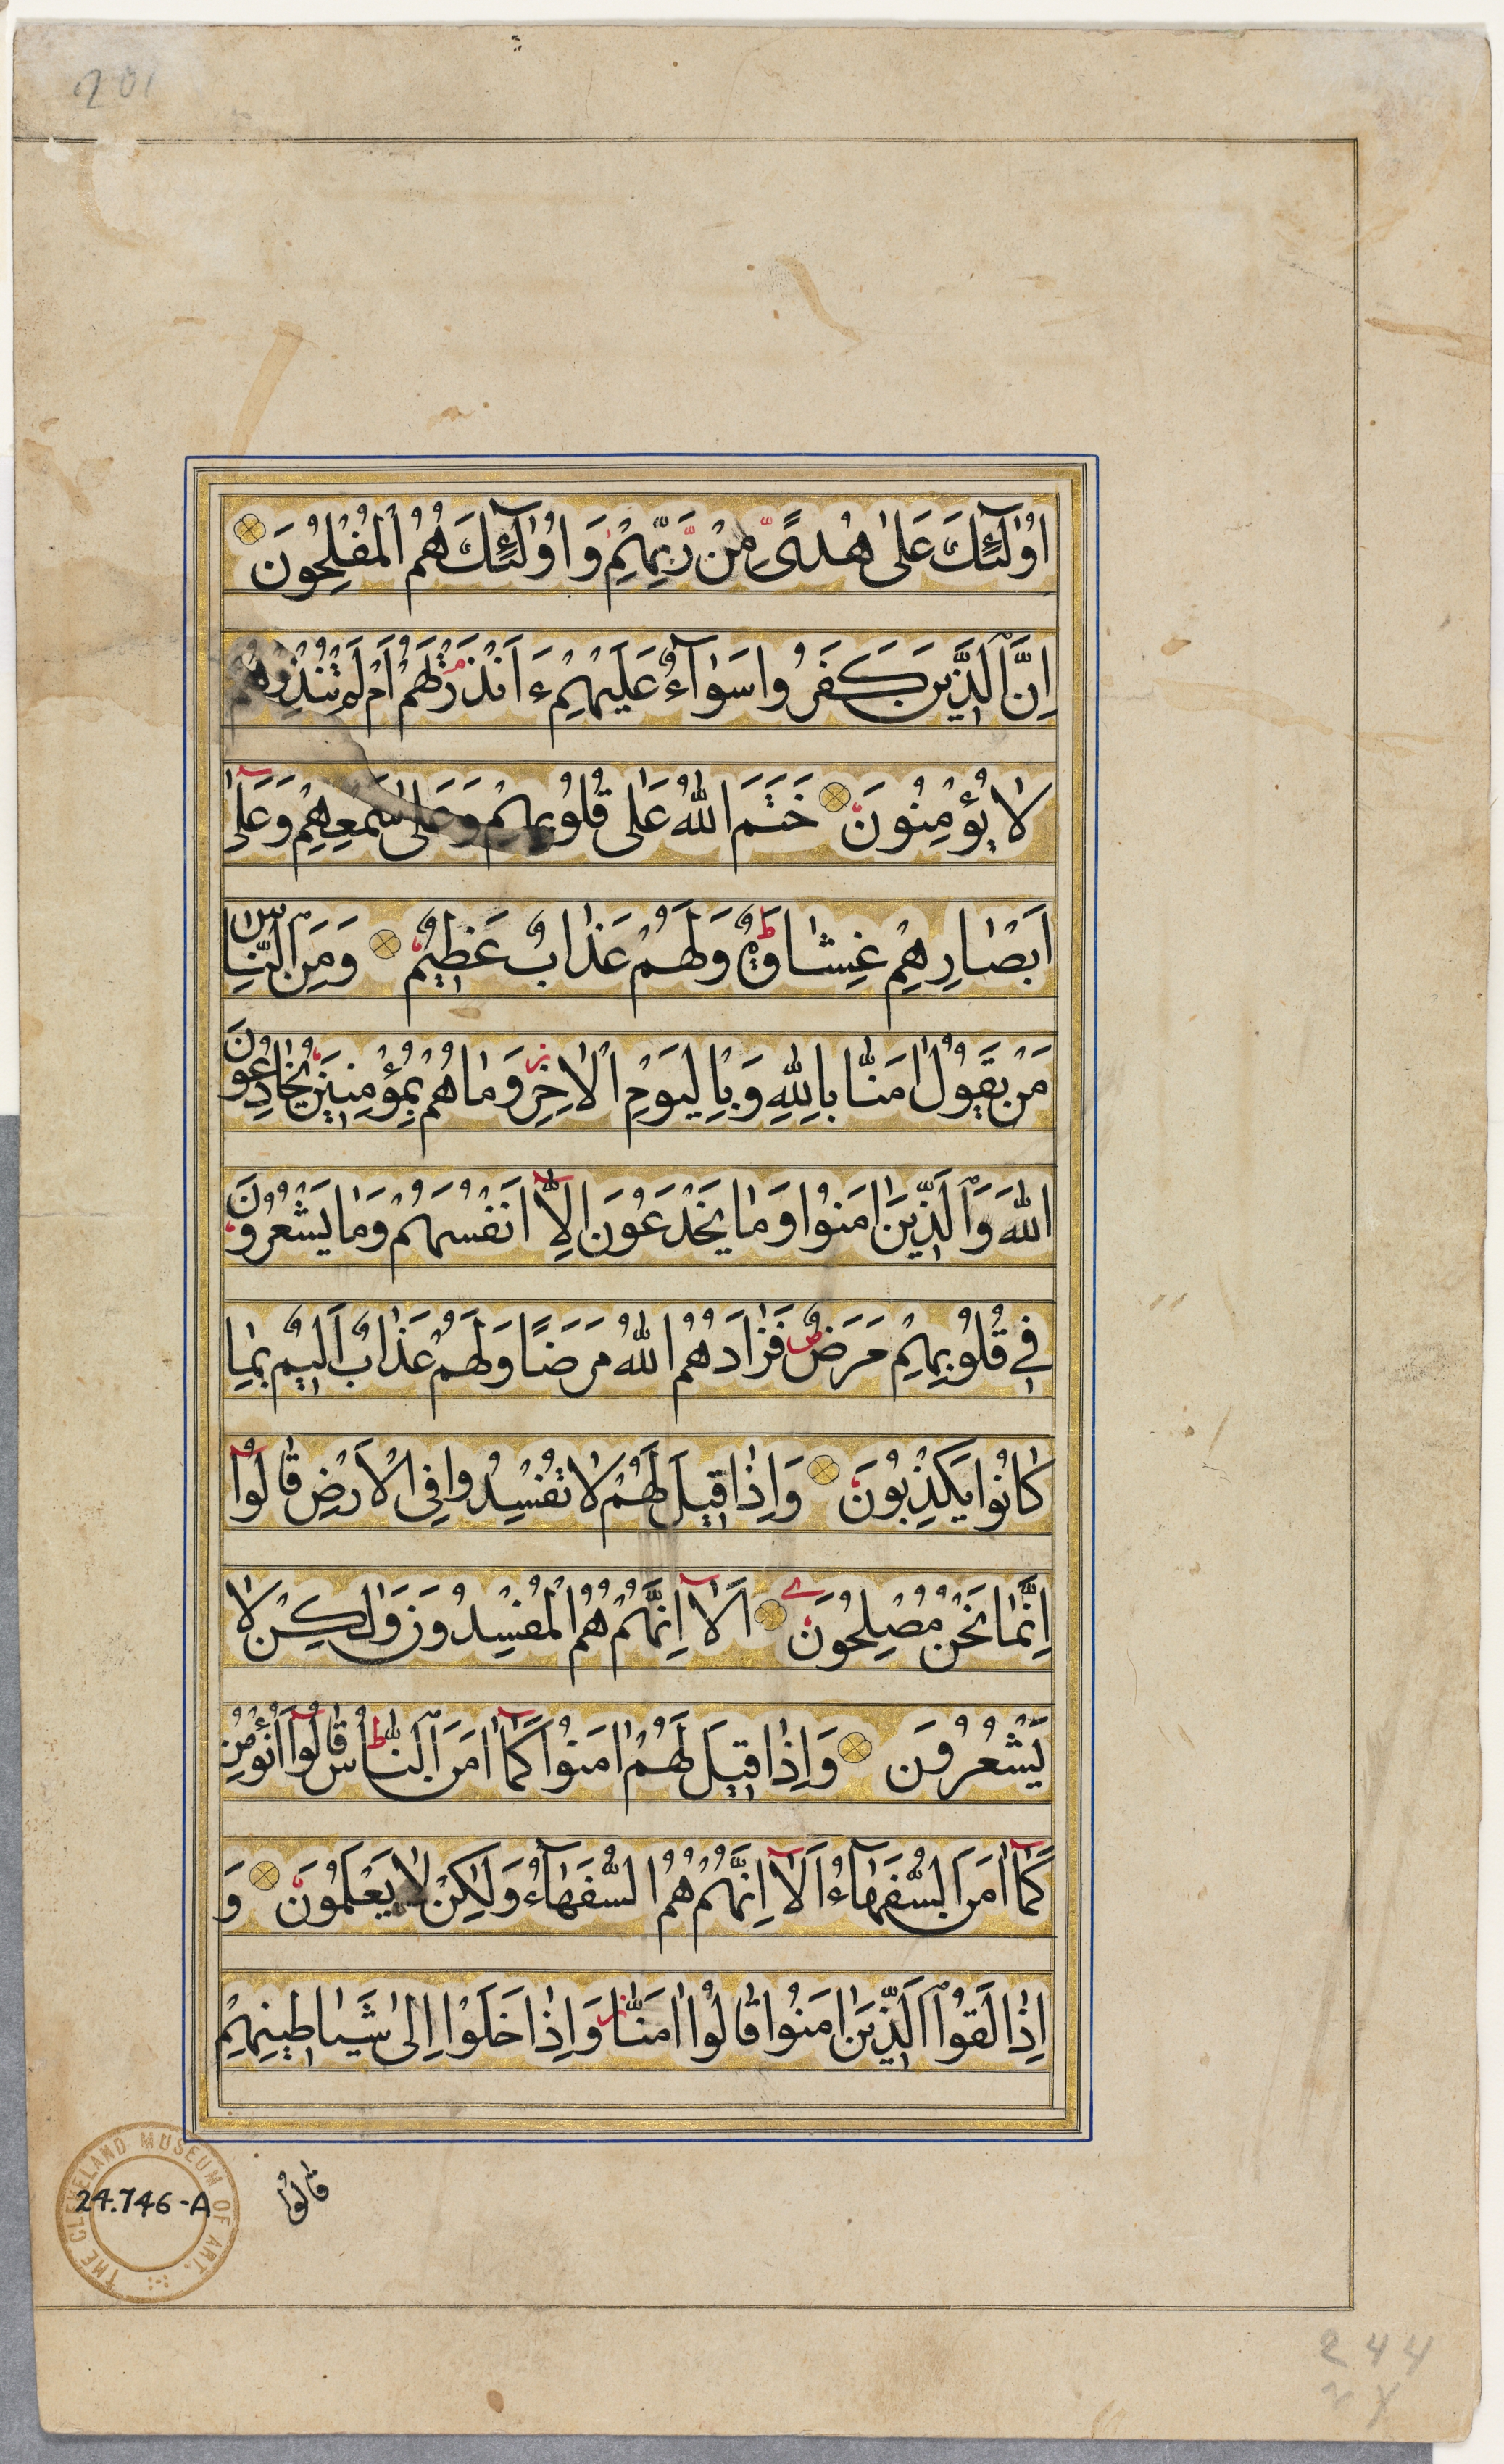 201
اُولٰٓئِكَ عَلٰى هُدًى مِنْ رَّبِّهِمْ وَاُولٰٓئِكَ هُمُ الْمُفْلِحُونَ
اِنَّ الَّذِينَ كَفَرُوا سَوَآءٌ عَلَيْهِمْ ءَاَنْذَرْتَهُمْ اَمْ لَمْ تُنْذِرْهُمْ
لَا يُؤْمِنُونَ خَتَمَ اللّٰهُ عَلٰى قُلُوبِهِمْ وَعَلٰى سَمْعِهِمْ وَعَلٰٓى
اَبْصَارِهِمْ غِشَاوَةٌ ط وَلَهُمْ عَذَابٌ عَظِيمٌ وَمِنَ النَّاسِ
مَنْ يَقُولُ اٰمَنَّا بِاللّٰهِ وَبِالْيَوْمِ الْاٰخِرِ وَمَا هُمْ بِمُؤْمِنِينَ يُخَادِعُونَ
اللّٰهَ وَالَّذِينَ اٰمَنُوا وَمَا يَخْدَعُونَ اِلَّآ اَنْفُسَهُمْ وَمَا يَشْعُرُونَ
فِي قُلُوبِهِمْ مَرَضٌ فَزَادَهُمُ اللّٰهُ مَرَضًا وَلَهُمْ عَذَابٌ اَلِيمٌ بِمَا
كَانُوا يَكْذِبُونَ وَاِذَا قِيلَ لَهُمْ لَا تُفْسِدُوا فِي الْاَرْضِ قَالُوٓا
اِنَّمَا نَحْنُ مُصْلِحُونَ اَلَآ اِنَّهُمْ هُمُ الْمُفْسِدُونَ وَلٰكِنْ لَا
يَشْعُرُونَ وَاِذَا قِيلَ لَهُمْ اٰمِنُوا كَمَآ اٰمَنَ النَّاسُ ط قَالُوٓا اَنُؤْمِنُ
كَمَآ اٰمَنَ السُّفَهَآءُ اَلَآ اِنَّهُمْ هُمُ السُّفَهَآءُ وَلٰكِنْ لَا يَعْلَمُونَ وَ
اِذَا لَقُوا الَّذِينَ اٰمَنُوا قَالُوا اٰمَنَّا وَاِذَا خَلَوْا اِلٰى شَيَاطِينِهِمْ
قَالُوا
THE CLEVELAND MUSEUM OF ART.
24.746-A
244